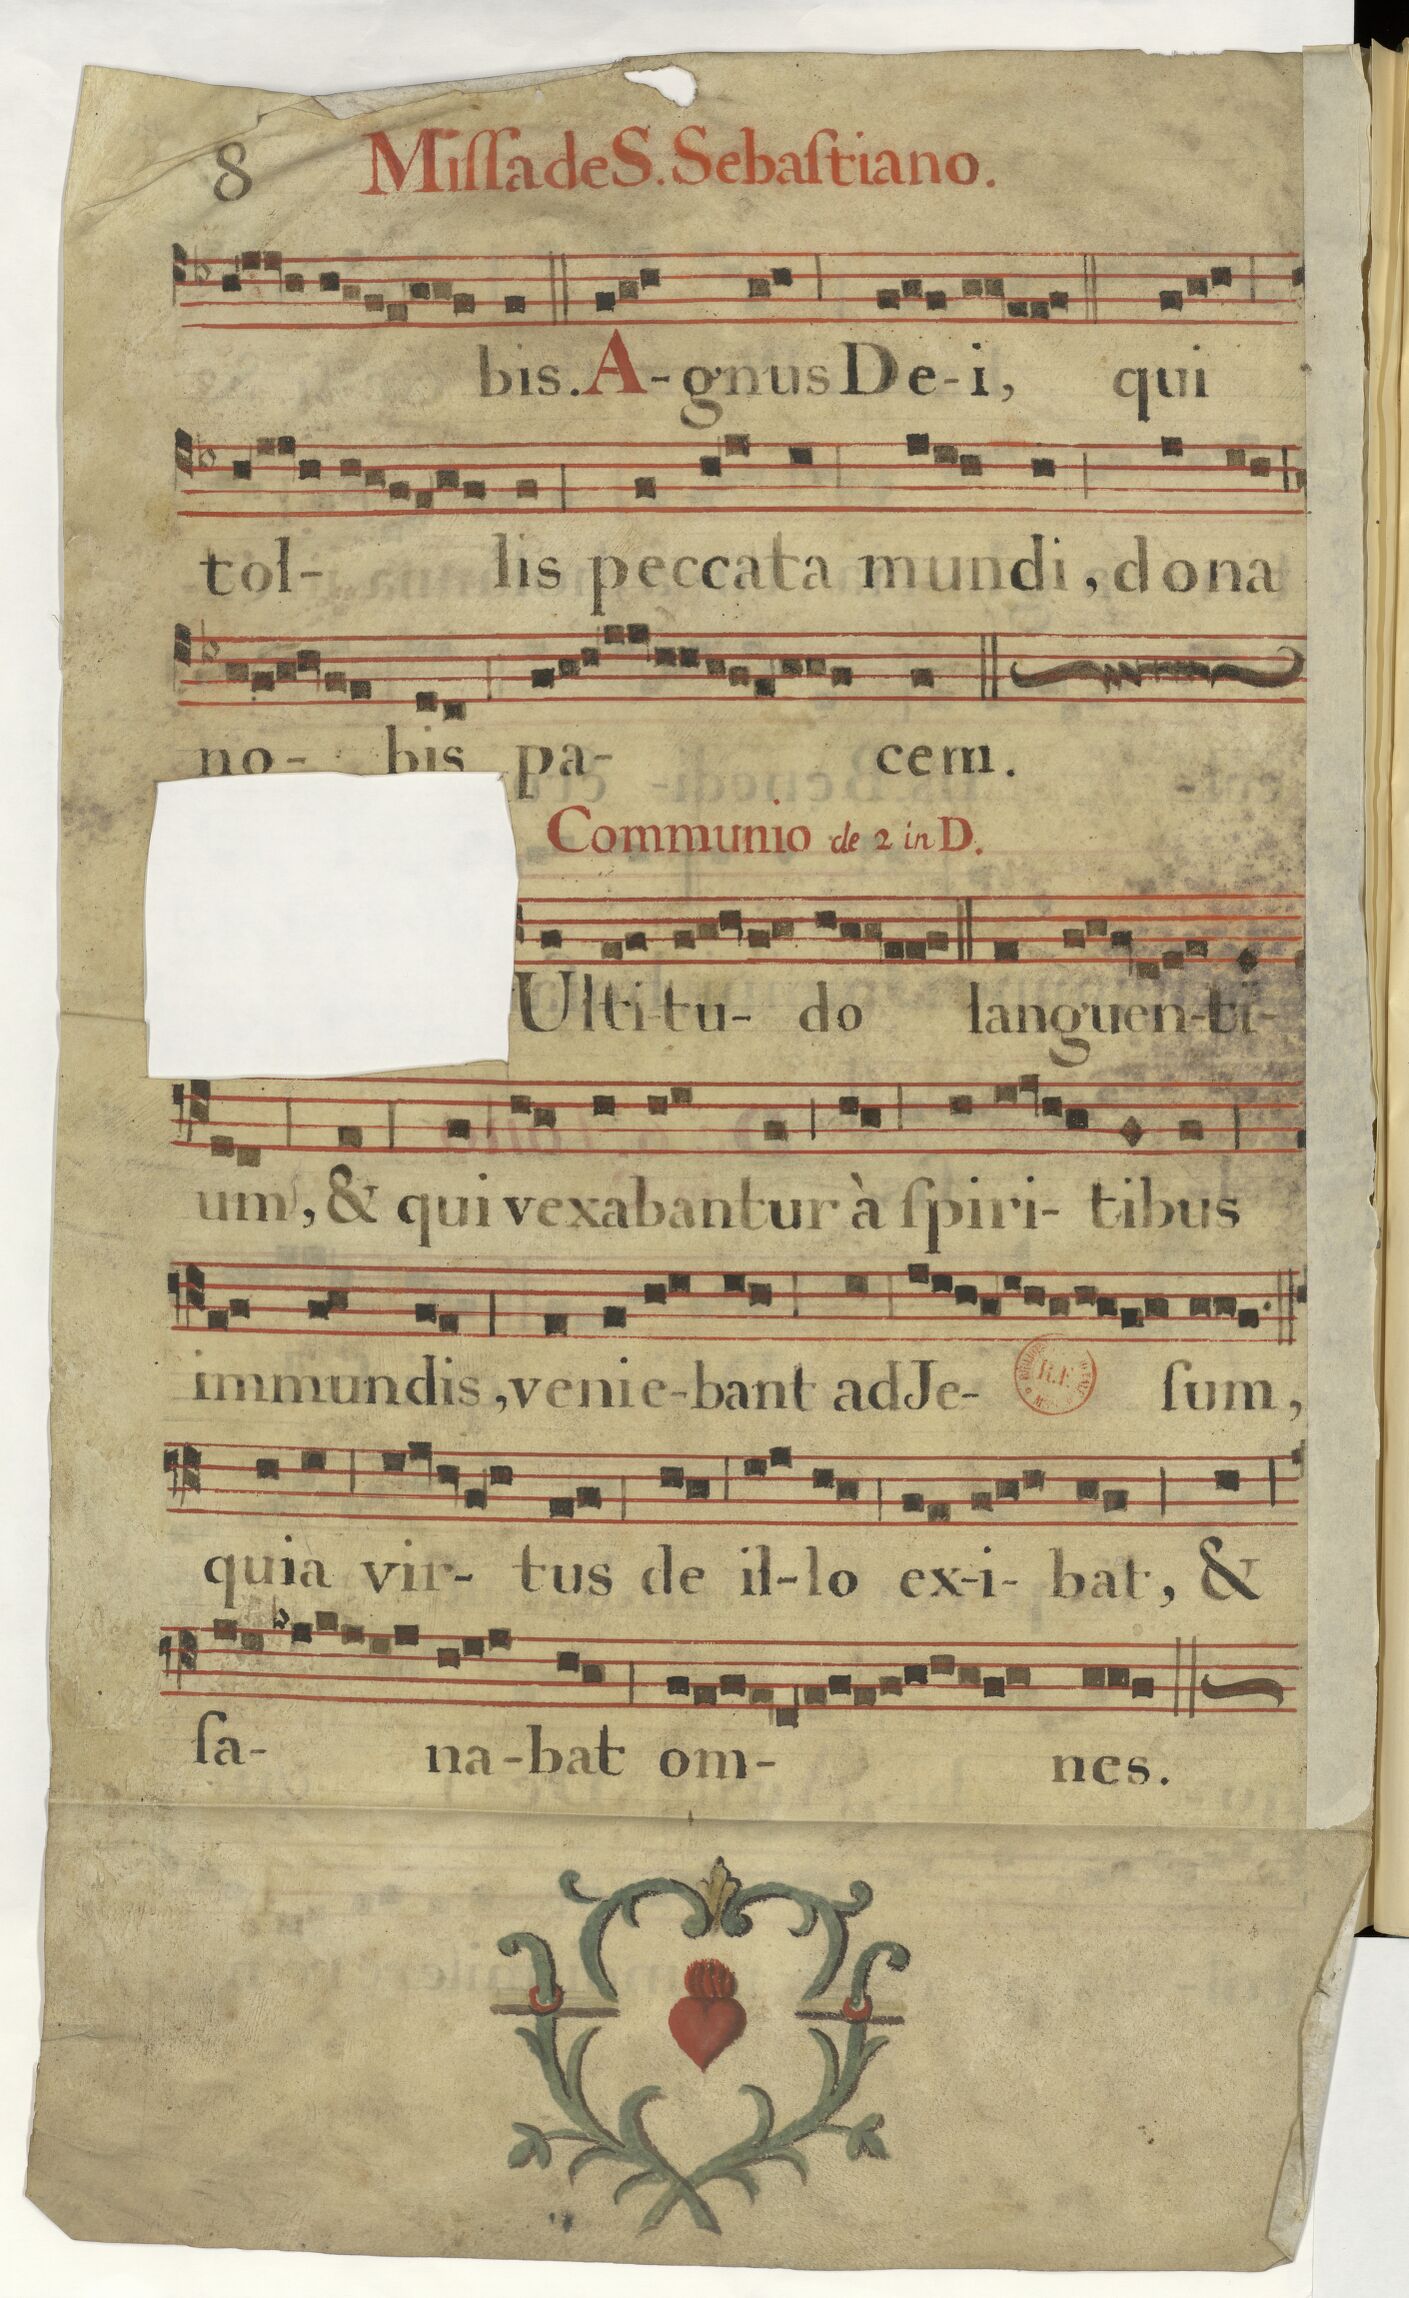 8 Miſſa de S. Sebaſtiano.
bis. A-gnus De-i, qui
tol- lis peccata mundi, dona
no- bis pa- cem.
Communio de 2 in D.
Ulti-tu- do languen-ti-
um, & qui vexabantur à ſpiri- tibus
immundis, venie-bant ad Je- ſum,
R.F.
quia vir- tus de il-lo ex-i- bat, &
ſa- na-bat om- nes.